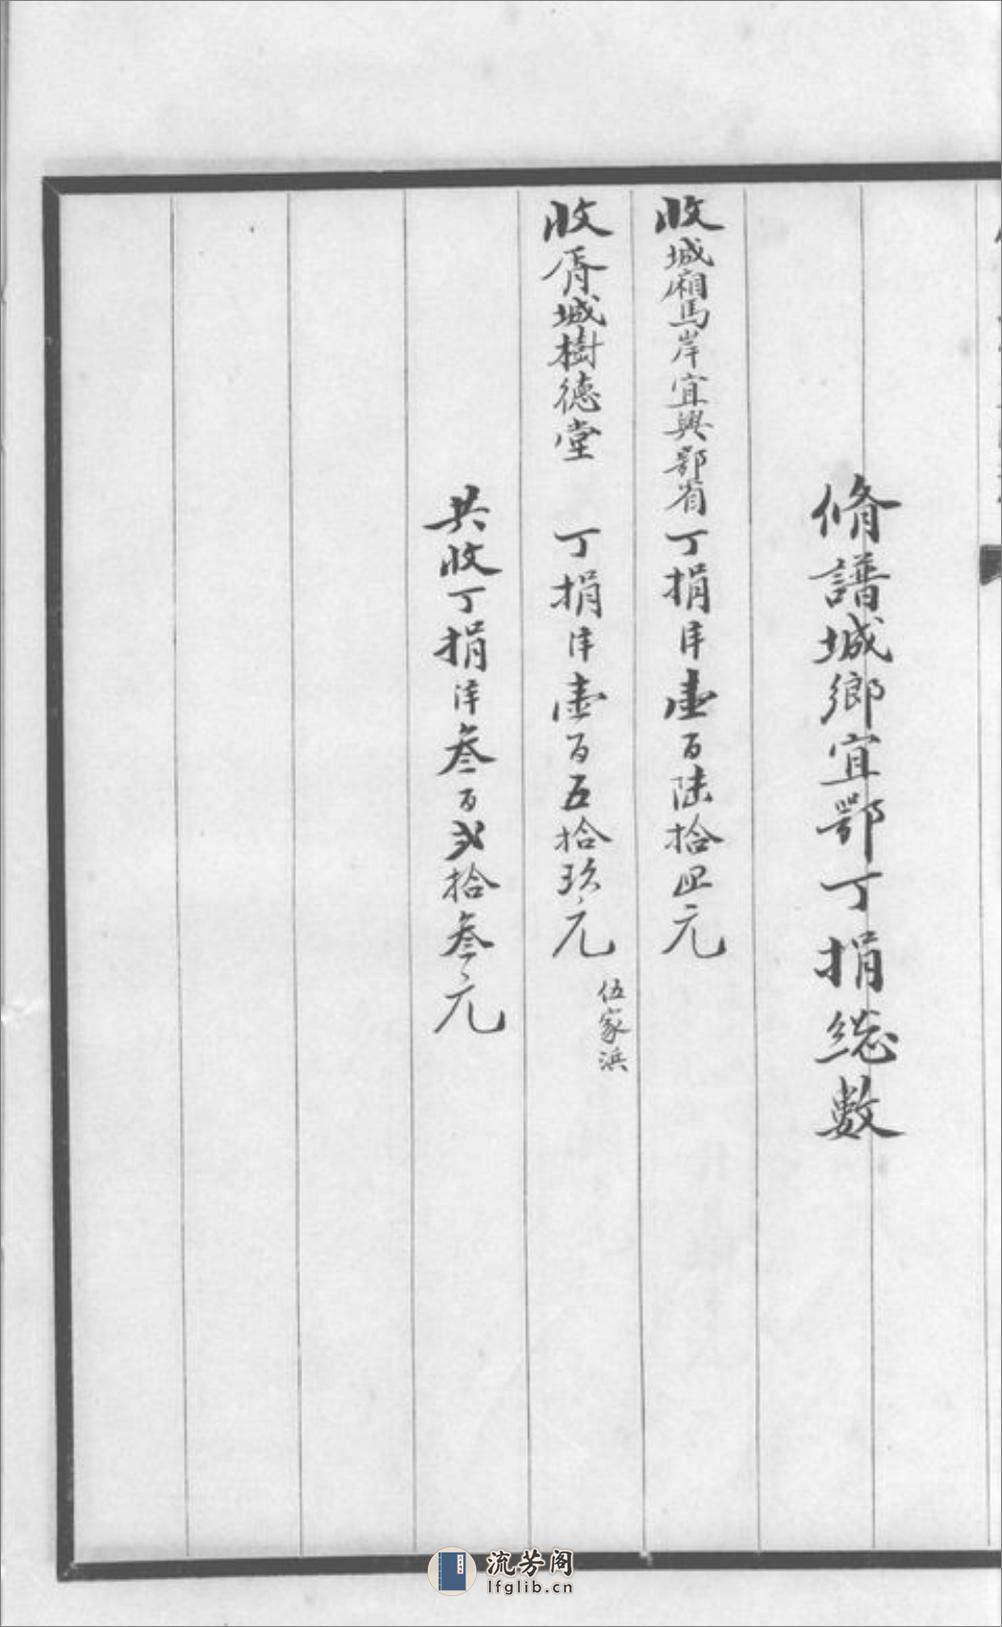 脩譜城鄉宜鄂丁捐総數
收城廂馬岸宜興鄂省丁捐洋壹百陸拾四元
收胥城樹德堂 丁捐洋壹百五拾玖元
伍家浜
共收丁捐洋叁百弍拾叁元
流芳阁
lfglib.cn